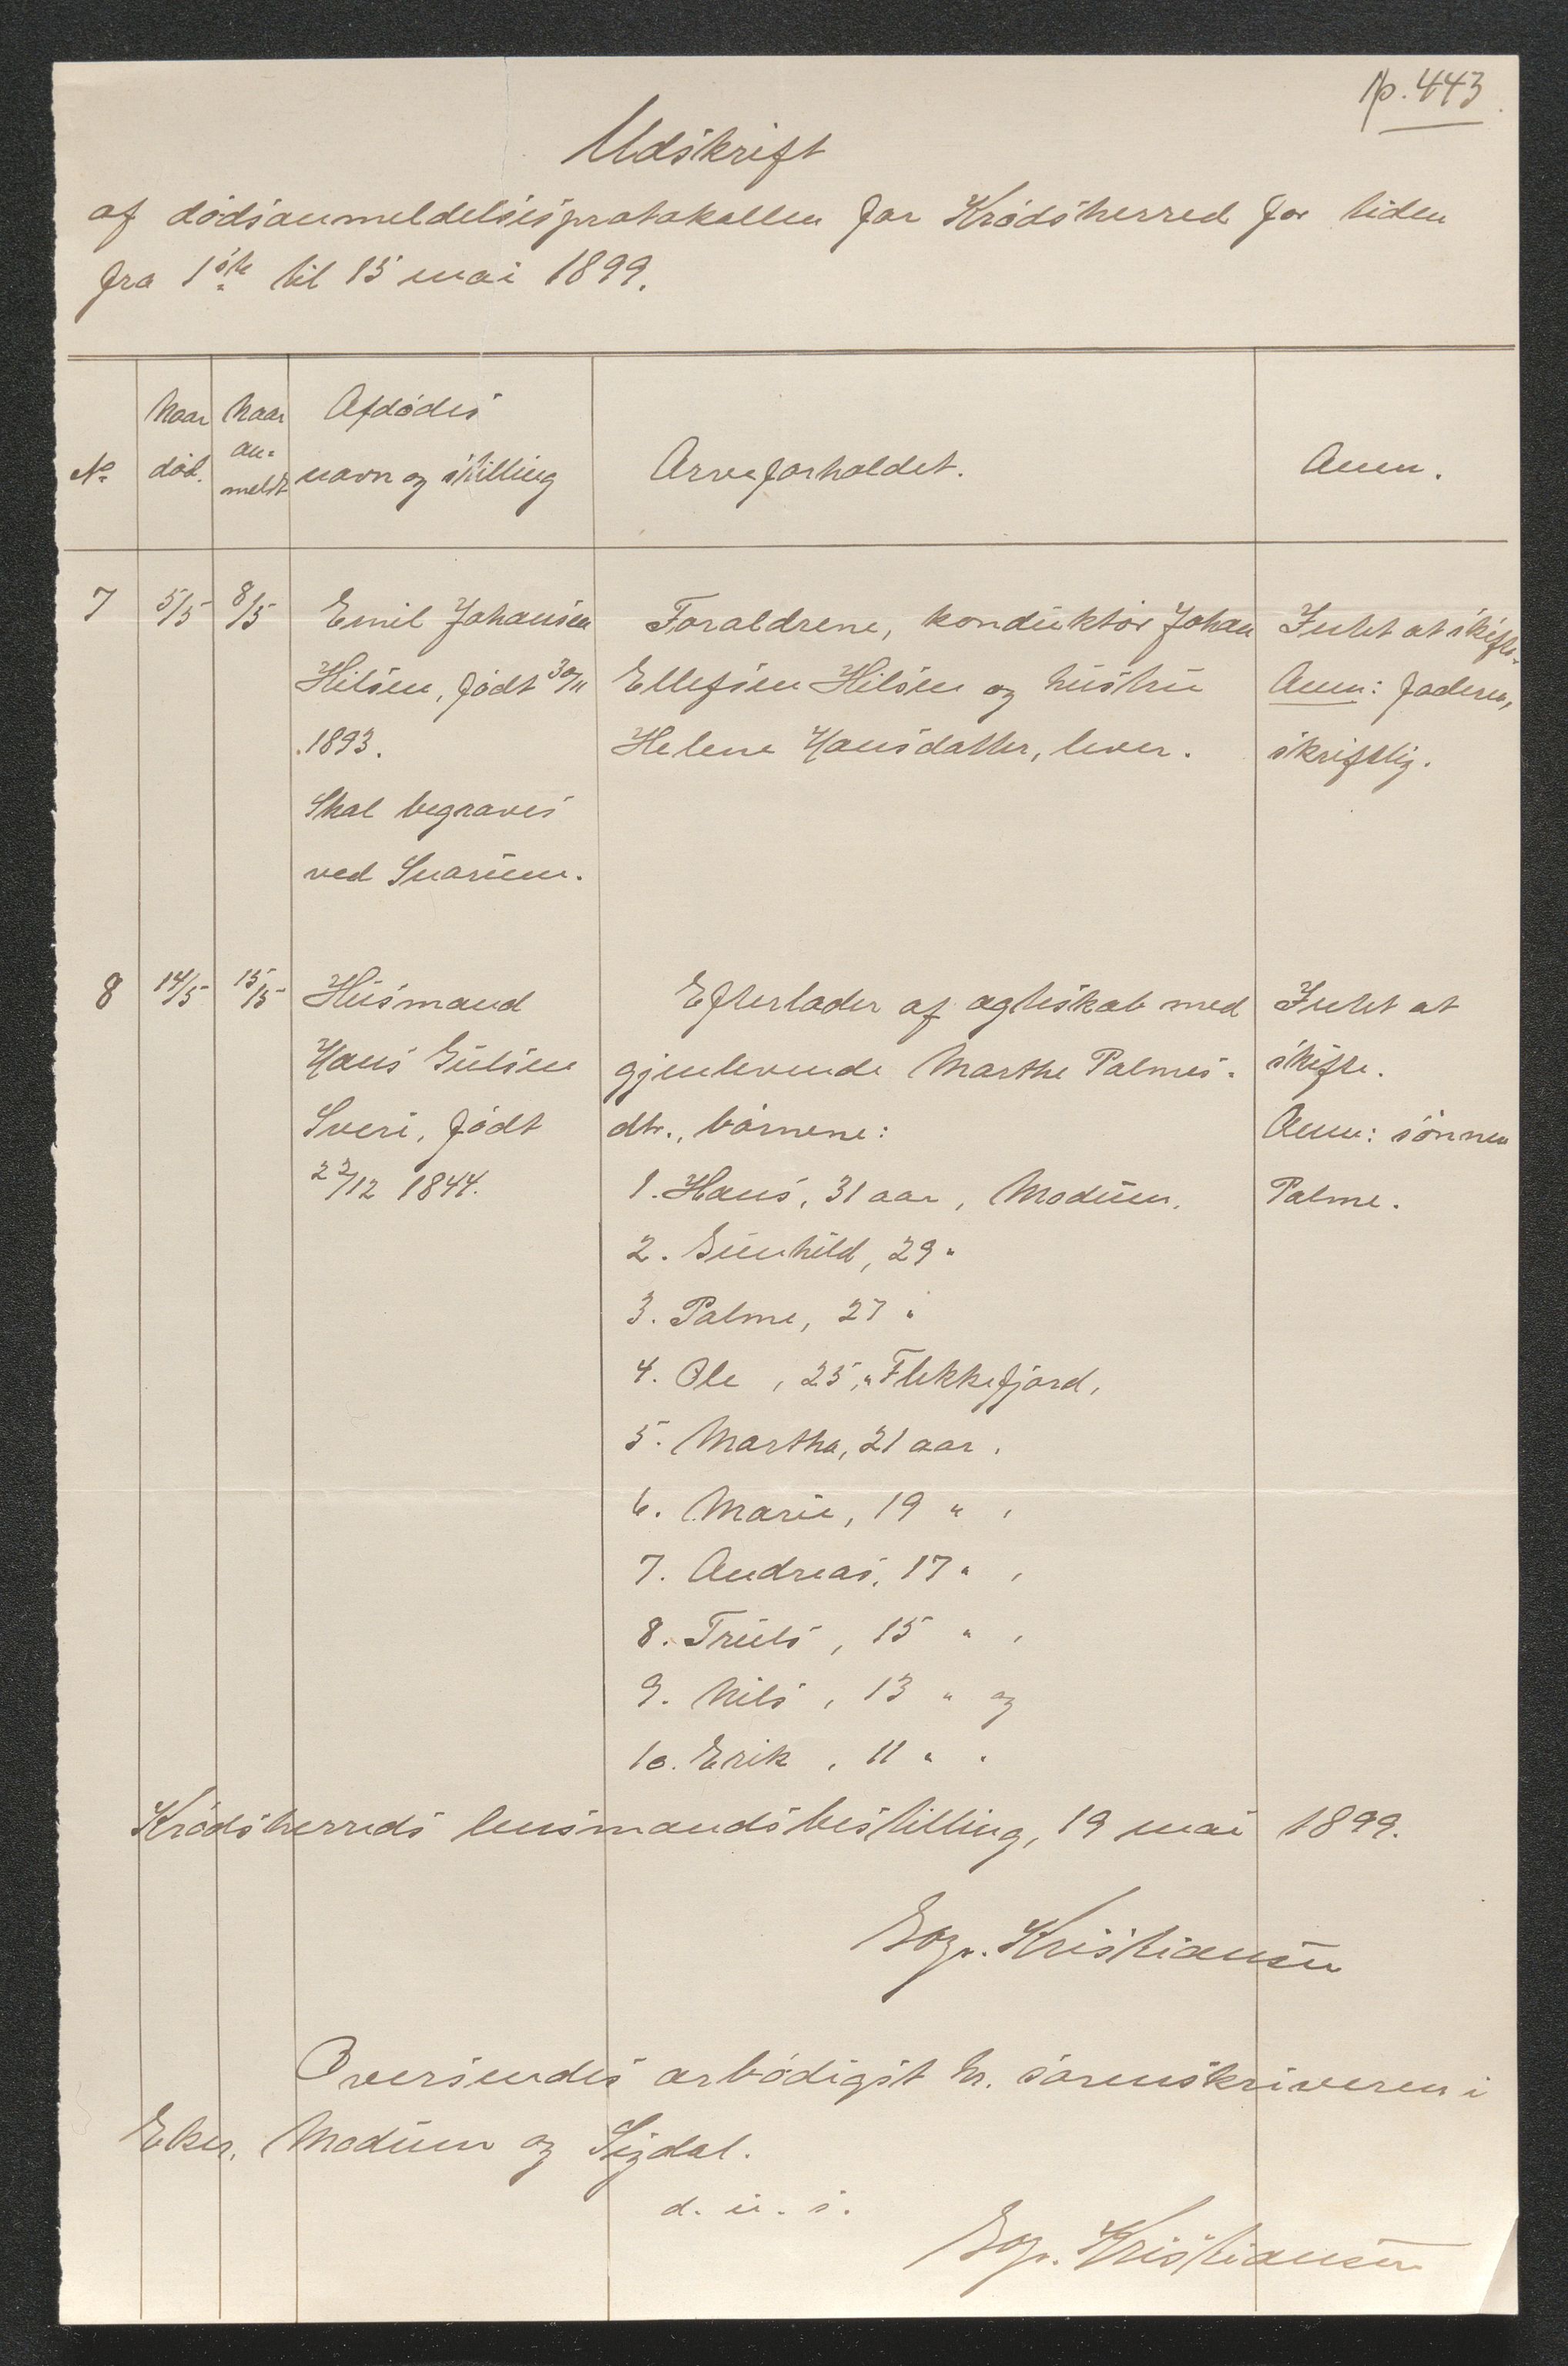 Np. 443
Udskrift
af dødsanmeldelsesprotokollen for Krødsherred for tiden
fra 1ste til 15 mai 1899.
No
Naar
død.
Naar
an-
meldt
Afdødes
navn og stilling
Arveforholdet.
Anm.
7
5/5
8/5
Emil Johansen
Hilsen, født 30/11
1893.
Skal begraves
ved Snarum.
Forældrene, konduktør Johan
Ellefsen Hilsen og hustru
Helene Hansdatter, lever.
Intet at skifte.
Anm: faderen,
skriftlig.
8
14/5
15/5
Husmand
Hans Gulsen
Sveri, født
22/12 1844.
Efterlader af ægteskab med
gjenlevende Marthe Palmes-
dtr., børnene:
1. Hans, 31 aar, Modum,
2. Gunhild, 29 "
3. Palme, 27 "
4. Ole, 25, " Flekkefjord,
5. Martha, 21 aar,
6. Marie, 19 " ,
7. Andreas, 17 " ,
8. Truls, 15 " ,
9. Nils, 13 " og
10. Erik, 11 " .
Intet at
skifte.
Anm: sønnen
Palme.
Krødsherreds lensmandsbestilling, 19 mai 1899.
Kristiansen
Oversendes ærbødigst hr. sorenskriveren i
Eker, Modum og Sigdal.
d. u. s.
Kristiansen